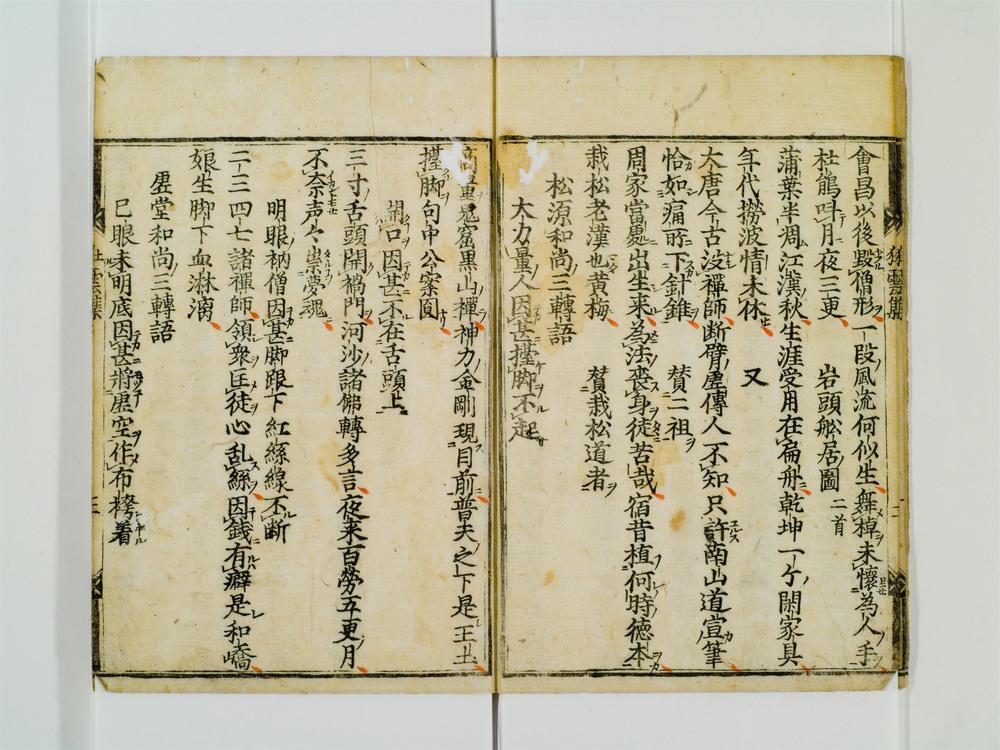 會昌以後毀僧形一段風流何似生舞棹未懷為人手
杜鵑叫月夜三更　岩頭舩居圖二首
蒲葉半凋江漢秋生涯受用在扁舟乾坤一ケ閑家具
年代撈波情未休　又
大唐今古沒禪師断臂虛傳人不知只許南山道宣筆
恰如痛所下針錐　賛二祖
周家當處出生来為法喪身徒苦哉宿昔植何時徳本
栽松老漢也黄梅　賛栽松道者
松源和尚三轉語
大力量人因甚擡脚不起
鬼窟黒山禪神力金剛現目前普天之下是王土
擡脚句中公案圓
開口因甚不在舌頭上
三寸舌頭開禍門河沙諸佛轉多言夜来百勞五更月
不奈声々祟夢魂
明眼衲僧因甚脚跟下紅絲線不断
二三四七諸禪師領衆匡徒心乱絲因錢有癖是和嶠
娘生脚下血淋漓
虛堂和尚三轉語
巳眼未明底因甚將虛空作布袴着
狂雲集　二
狂雲集　二